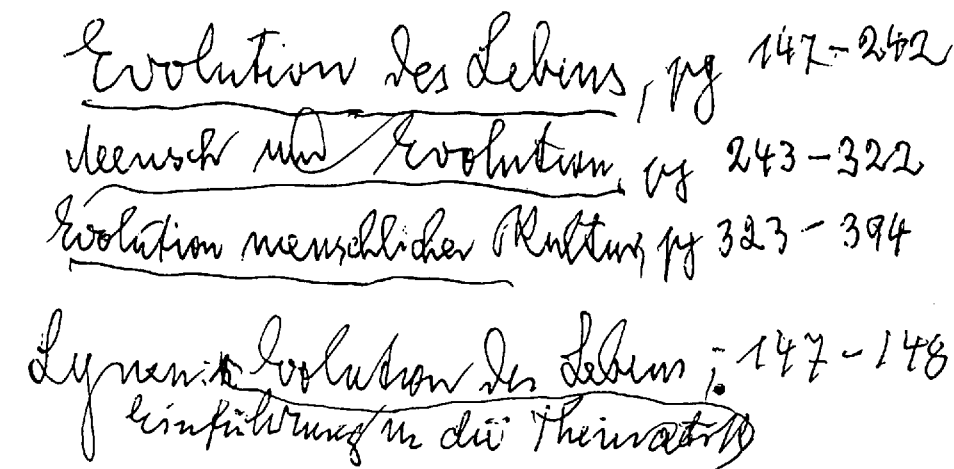 Evolution des Lebens, pg 147-242
Mensch und Evolution, pg 243-322
Evolution menschlicher Kultur, pg 323-394
Lynen: Evolution des Lebens; 147-148
Einführung in die Thematik